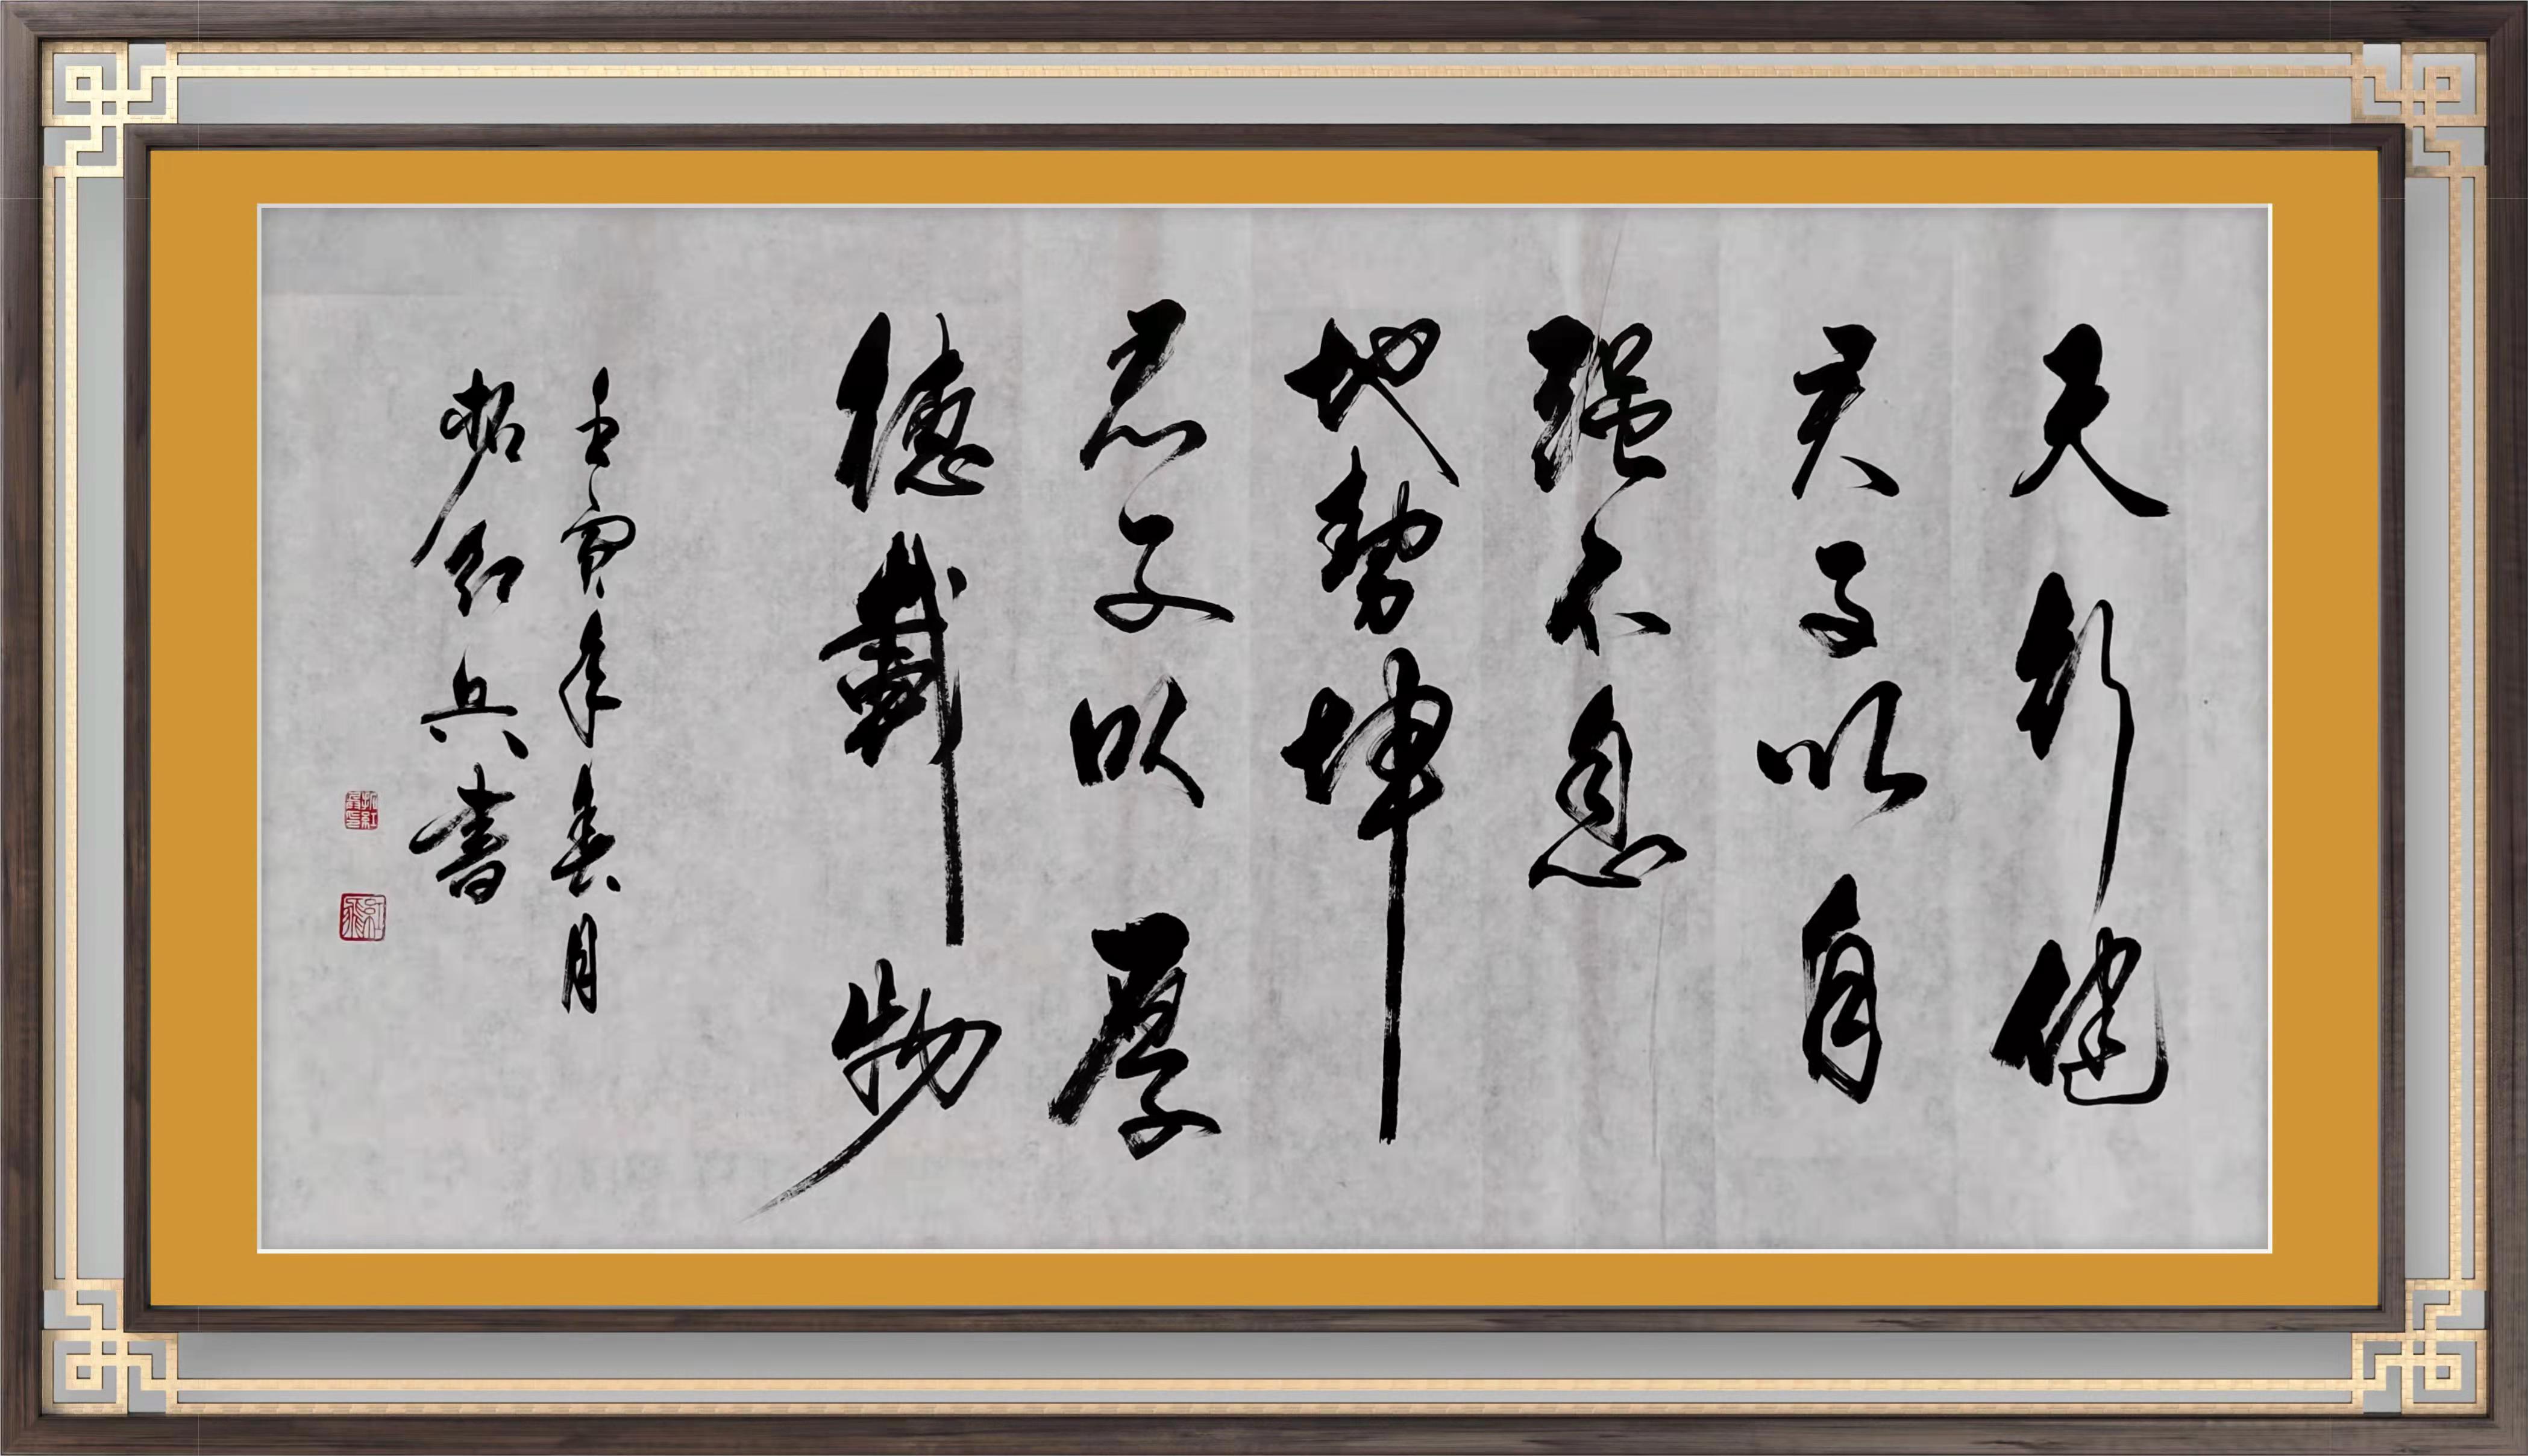 天行健
君子以自
强不息
地勢坤
君子以厚
德載物
壬寅年春月
红兵书